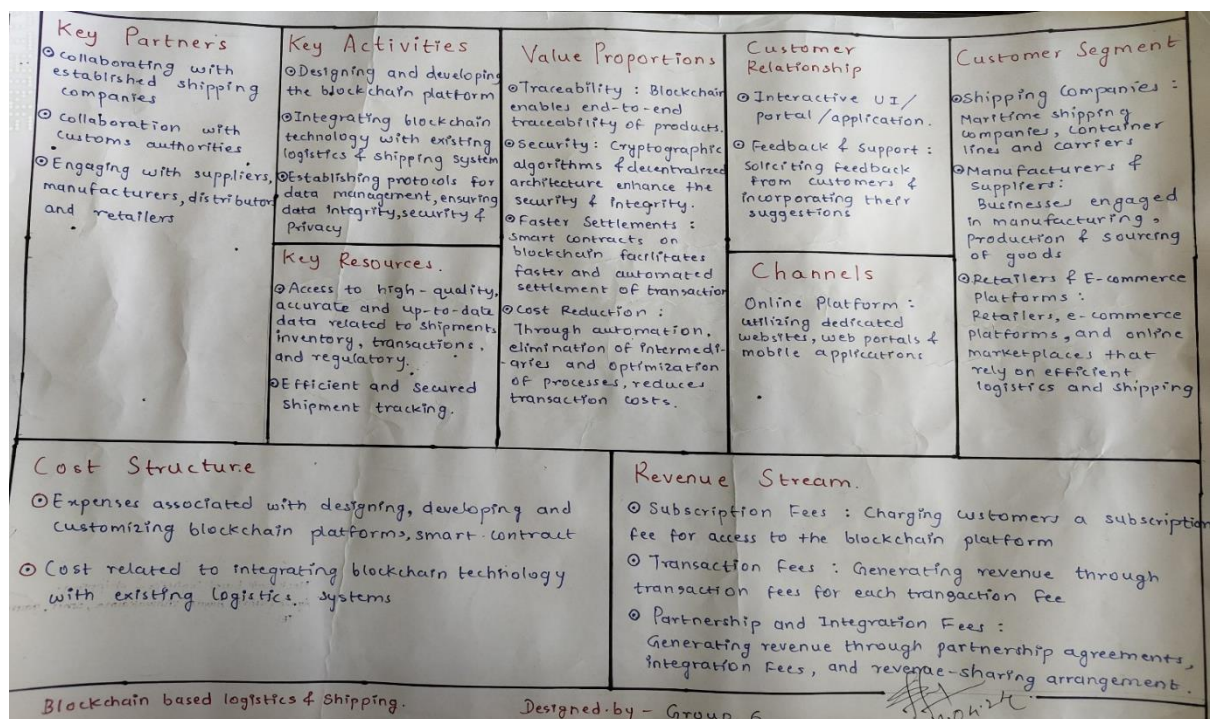 Key Partners
⊙ Collaborating with
established shipping
companies
⊙ Collaboration with
customs authorities
⊙ Engaging with suppliers,
manufacturers, distributor
and retailers
Key Activities
⊙ Designing and developing
the blockchain platform
⊙ Integrating blockchain
technology with existing
logistics & shipping system
⊙ Establishing protocols for
data management, ensuring
data integrity, security &
privacy
Key Resources.
⊙ Access to high-quality,
accurate and up-to-data
data related to shipments
inventory, transactions,
and regulatory.
⊙ Efficient and secured
shipment tracking.
Value Proportions
⊙ Traceability : Blockchain
enables end-to-end
traceability of products.
⊙ Security : Cryptographic
algorithms & decentralized
architecture enhance the
security & integrity.
⊙ Faster Settlements :
smart contracts on
blockchain facilitates
faster and automated
settlement of transaction
⊙ Cost Reduction :
Through automation,
elimination of intermedi-
-aries and optimization
of processes, reduces
transaction costs.
Customer
Relationship
⊙ Interactive UI/
portal/application.
⊙ Feedback & Support :
Soliciting feedback
from customers &
incorporating their
suggestions
Channels
Online Platform :
utilizing dedicated
websites, web portals &
mobile applications
Customer Segment
⊙ Shipping Companies :
Maritime shipping
companies, container
lines and carriers
⊙ Manufacturers &
Suppliers:
Businesses engaged
in manufacturing,
production & sourcing
of goods
⊙ Retailers & E-commerce
Platforms :
Retailers, e-commerce
platforms, and online
marketplaces that
rely on efficient
logistics and shipping
Cost Structure
⊙ Expenses associated with designing, developing and
customizing blockchain platforms, smart contract
⊙ Cost related to integrating blockchain technology
with existing logistics systems
Revenue Stream.
⊙ Subscription Fees : Charging customers a subscription
fee for access to the blockchain platform
⊙ Transaction Fees : Generating revenue through
transaction fees for each transaction fee
⊙ Partnership and Integration Fees :
Generating revenue through partnership agreements,
integration fees, and revenue-sharing arrangement.
Blockchain based logistics & Shipping.
Designed by - Group 6